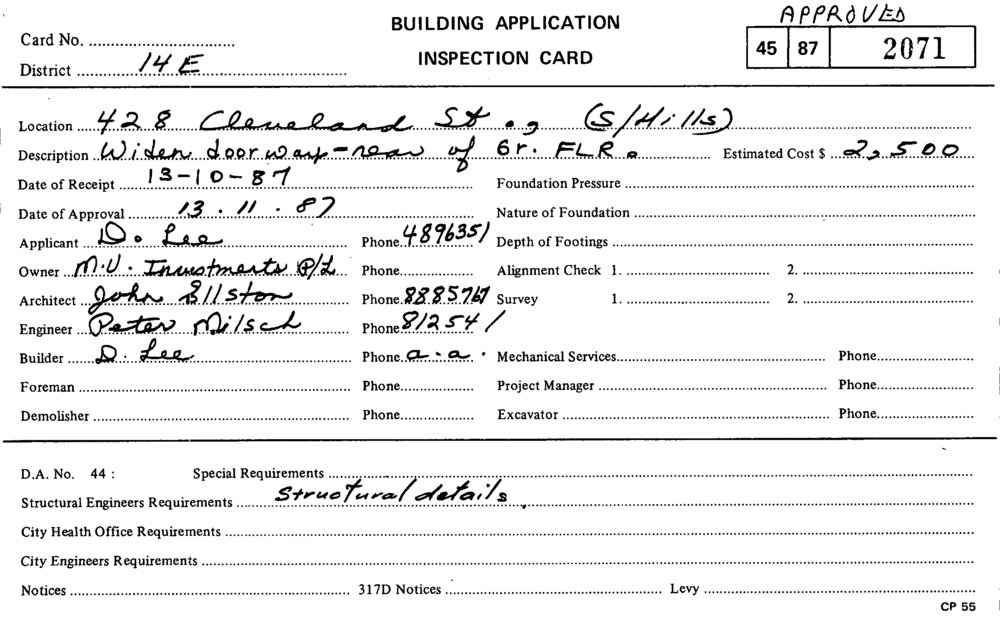 APPROVED
BUILDING APPLICATION
Card No.
45 87 2071
INSPECTION CARD
District 14 E
Location 428 Cleveland St., (S/Hills)
Description Widen doorway-rear of Gr. FLR. Estimated Cost $ 2,500
Date of Receipt 13-10-87 Foundation Pressure
Date of Approval 13.11.87 Nature of Foundation
Applicant D. Lee Phone 4896351 Depth of Footings
Owner M.U. Investments P/L Phone Alignment Check 1. 2.
Architect John Ellston Phone 8885767 Survey 1. 2.
Engineer Peter Milsch Phone 812541
Builder D. Lee Phone a.a. Mechanical Services Phone
Foreman Phone Project Manager Phone
Demolisher Phone Excavator Phone
D.A. No. 44 : Special Requirements
Structural Engineers Requirements Structural details.
City Health Office Requirements
City Engineers Requirements
Notices 317D Notices Levy
CP 55